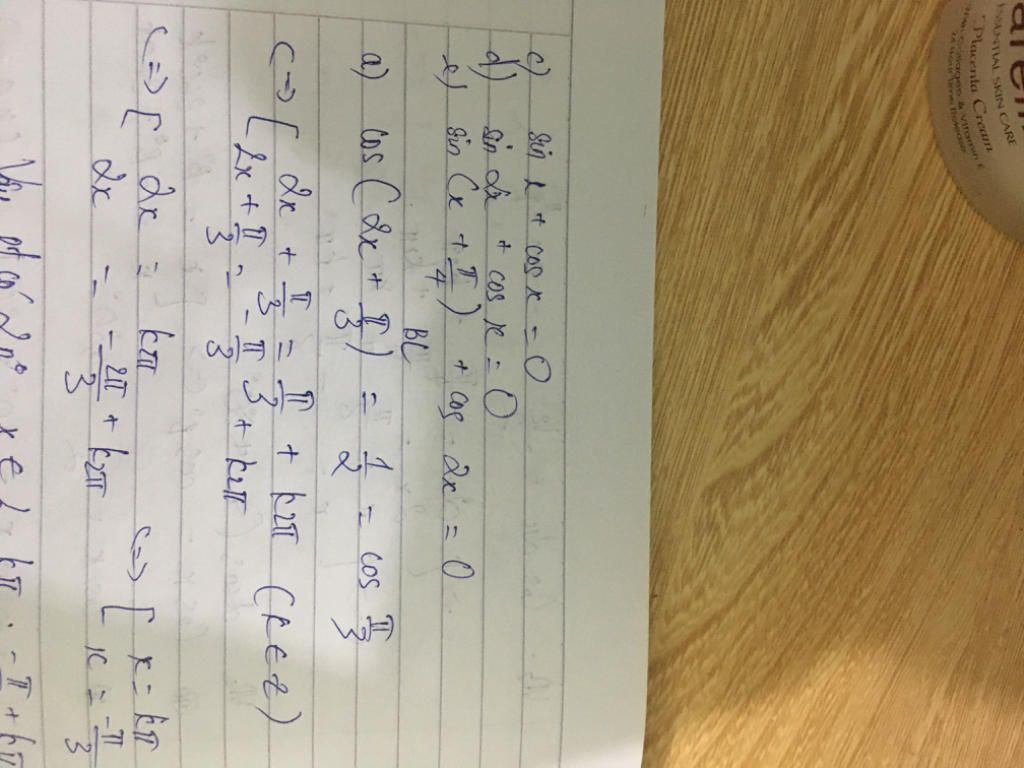 c) sin x + cos x = 0
d) sin 2x + cos x = 0
e) sin (x + π/4) + cos 2x = 0
BL
a) cos (2x + π/3) = 1/2 = cos π/3
<=> [ 2x + π/3 = π/3 + k2π (k ∈ z)
2x + π/3 = -π/3 + k2π
<=> [ 2x = kπ <=> [ x = kπ
2x = -2π/3 + k2π x = -π/3
Vậy pt có 2 n° x ∈ { kπ; -π + kπ
PLACENTAL SKIN CARE
Placenta Cream